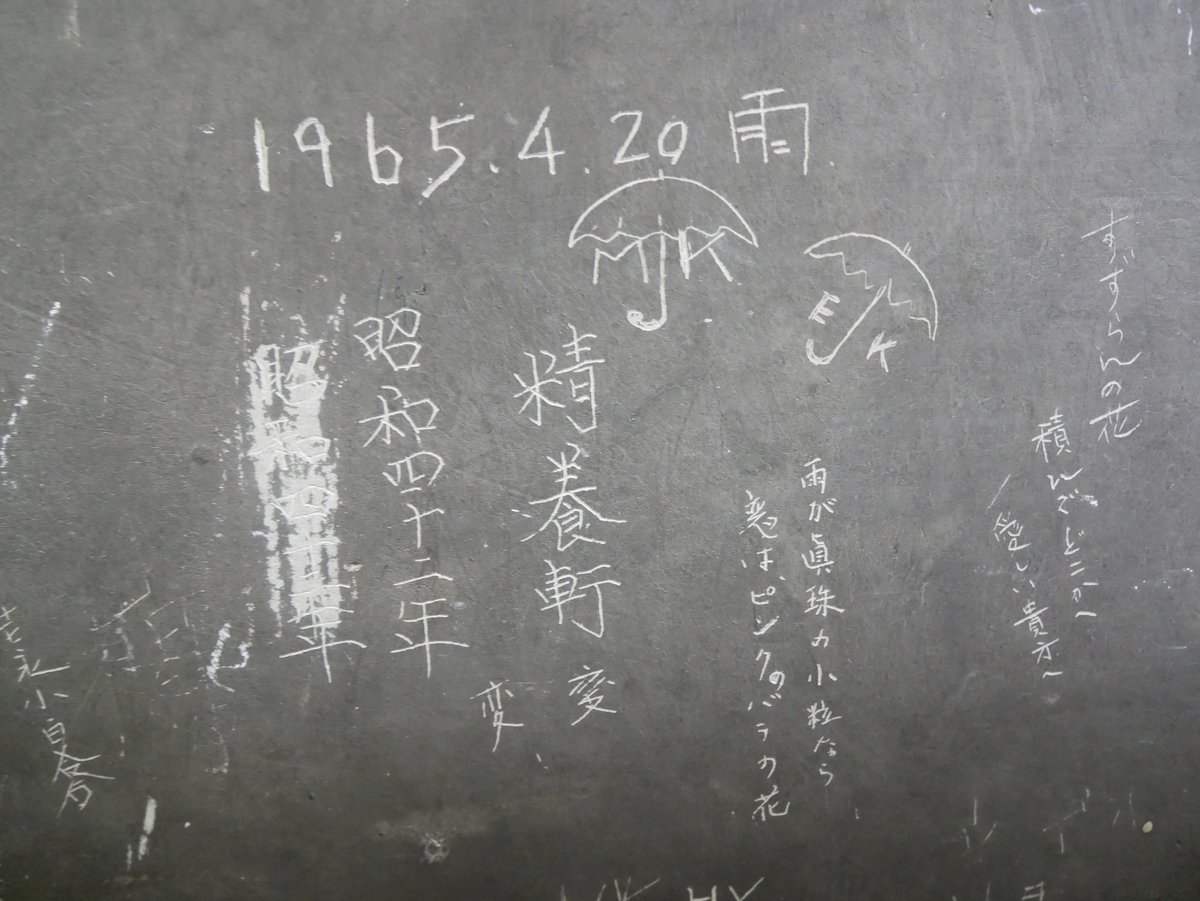 1965.4.20 雨
M K
E K
すずらんの花
積んでどこかへ
愛しい貴方へ
雨が眞珠の小粒なら
恋は、ピンクのバラの花
精養軒
変
変
昭和四十二年
昭和四十二年